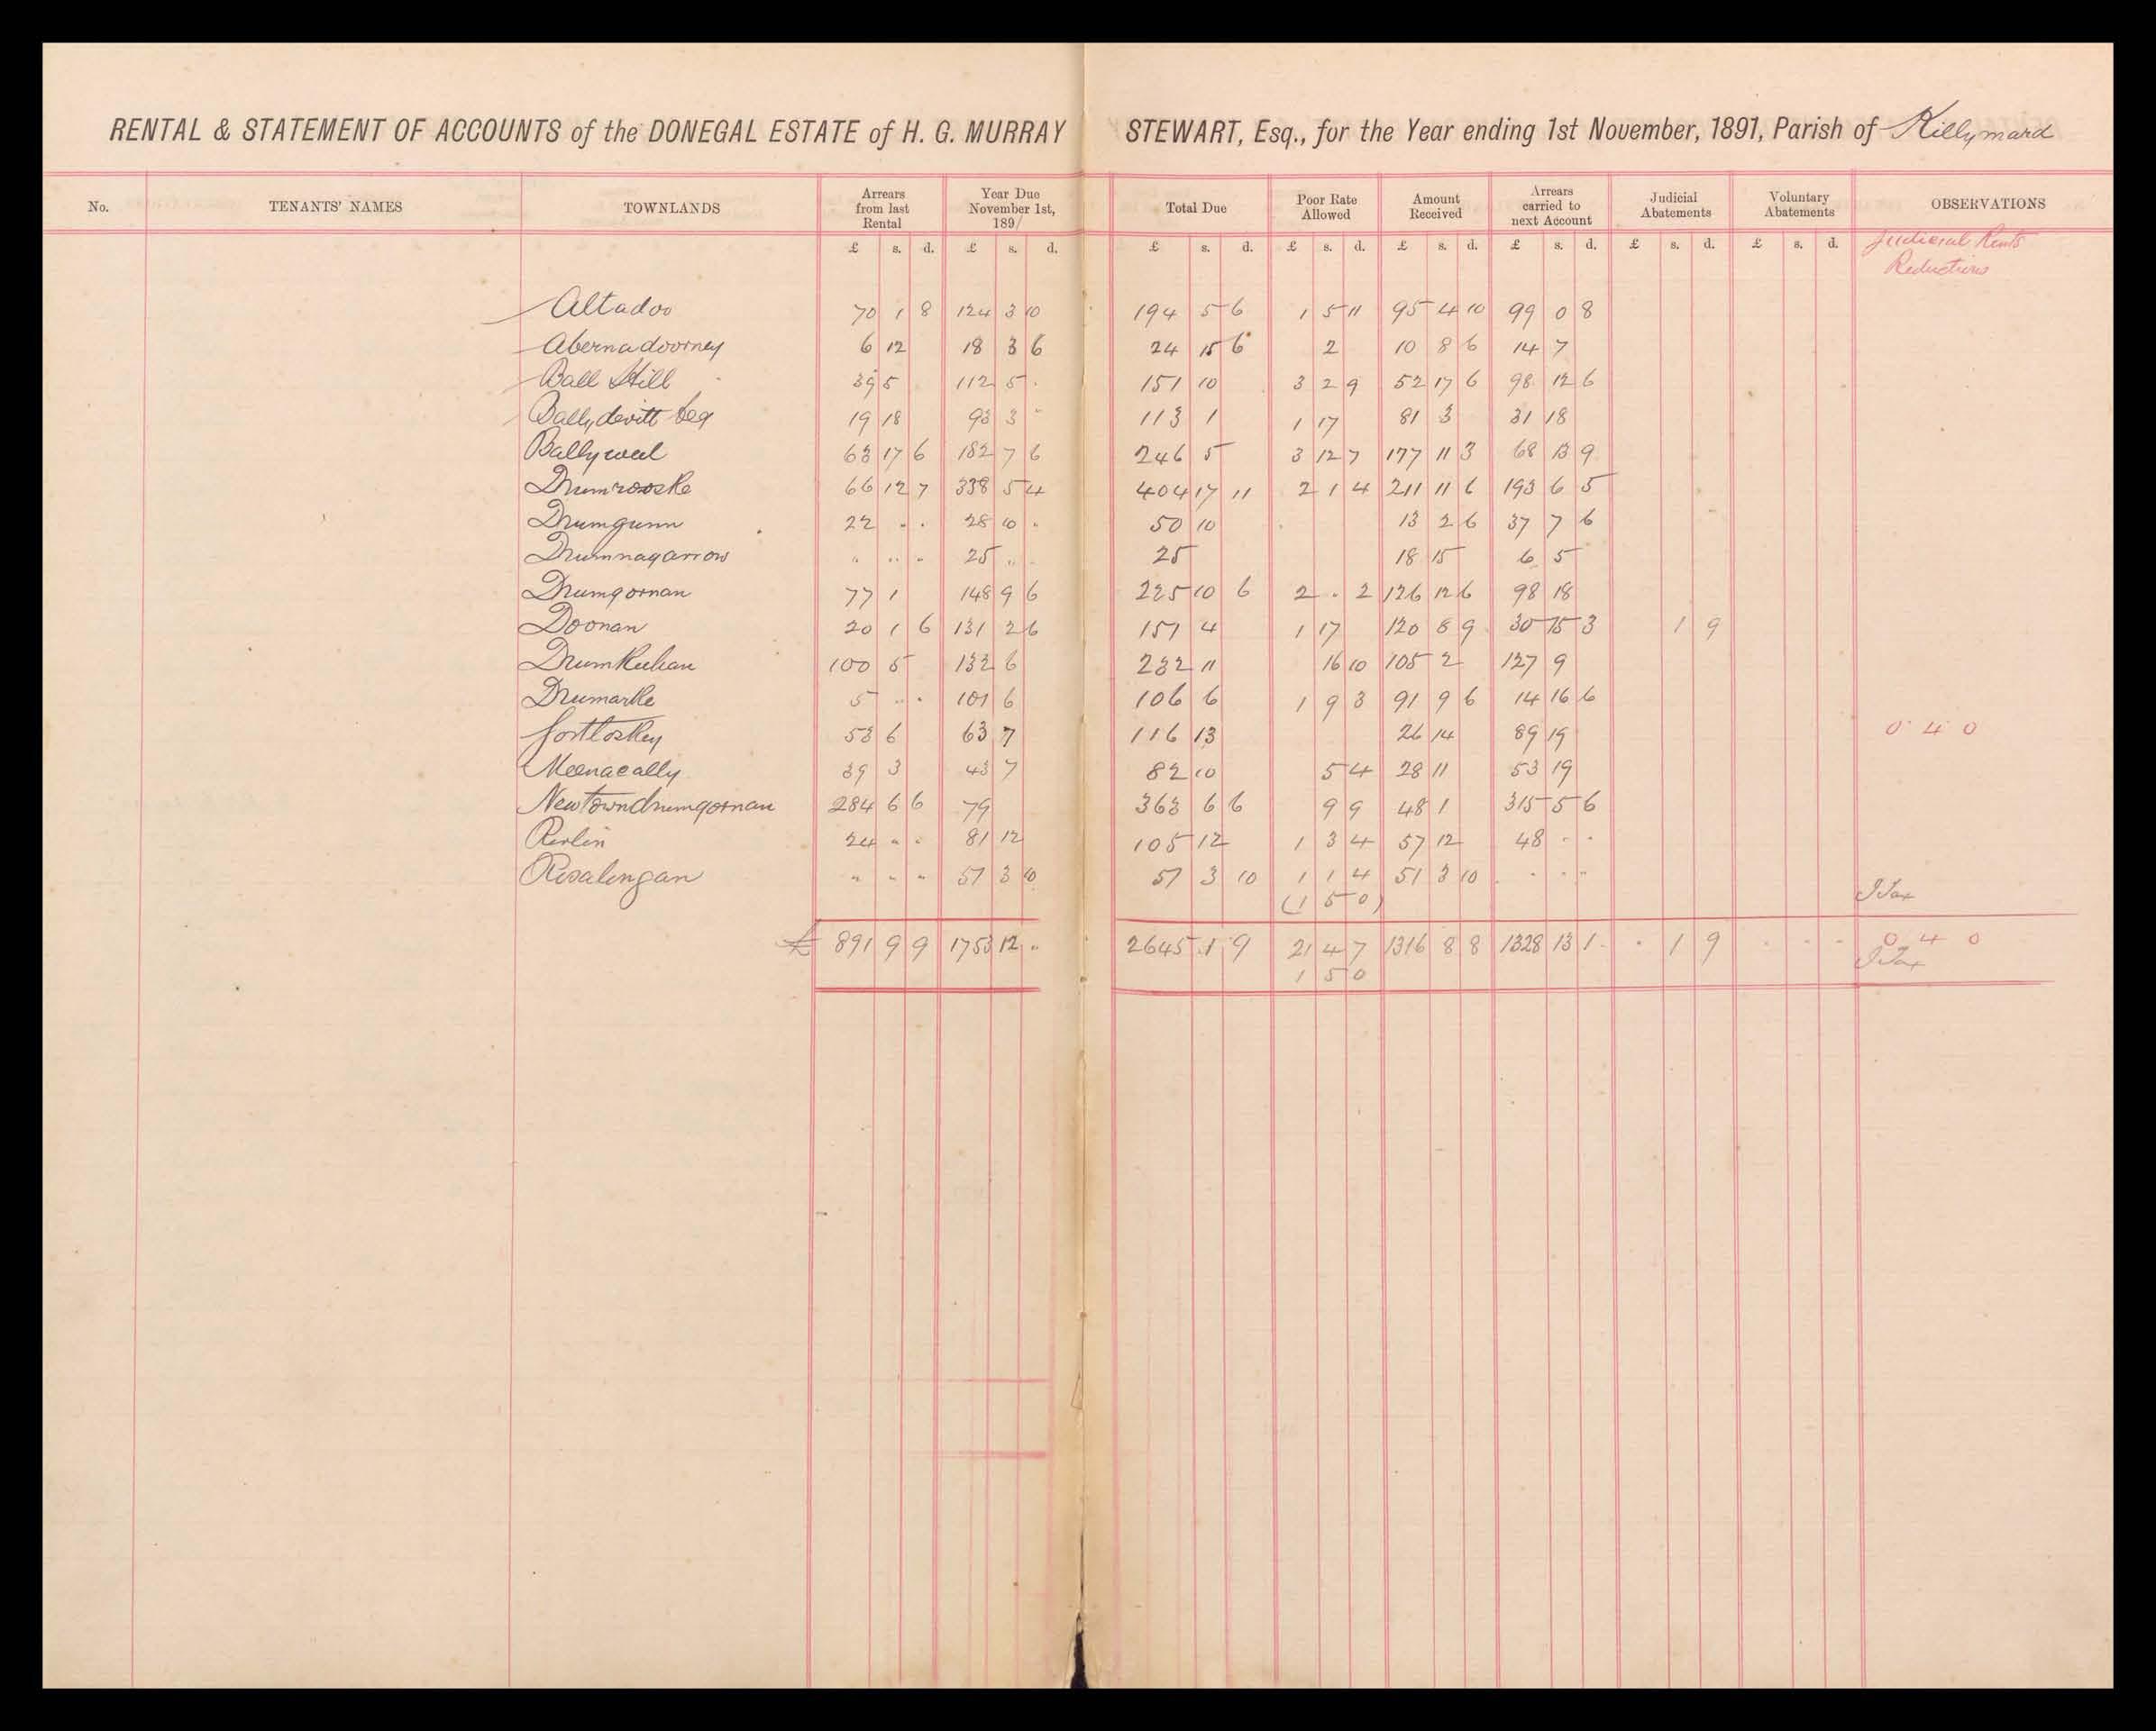 RENTAL & STATEMENT OF ACCOUNTS of the DONEGAL ESTATE of H. G. MURRAY STEWART, Esq., for the Year ending 1st November, 1891, Parish of Killymard
No. TENANTS' NAMES TOWNLANDS Arrears from last Rental Year Due November 1st, 1891 Total Due Poor Rate Allowed Amount Received Arrears carried to next Account Judicial Abatements Voluntary Abatements OBSERVATIONS
£ s. d. £ s. d. £ s. d. £ s. d. £ s. d. £ s. d. £ s. d. £ s. d. Judicial Rents
Reductions
Altadoo 70 1 8 124 3 10 194 5 6 1 5 11 95 4 10 99 0 8
Abernadoorney 6 12 18 3 6 24 15 6 2 10 8 6 14 7
Ball Hill 39 5 112 5 151 10 3 2 9 52 17 6 98 12 6
Ballydevitt beg 19 18 93 3 " 113 1 1 17 81 3 31 18
Ballyweel 63 17 6 182 7 6 246 5 3 12 7 177 11 3 68 13 9
Drumrooske 66 12 7 338 5 4 404 17 11 2 1 4 211 11 6 193 6 5
Drumgunn 22 . . 28 10 . 50 10 13 2 6 37 7 6
Drumnagarrow " " . 25 " . 25 18 15 6 5
Drumgornan 77 1 148 9 6 225 10 6 2 . 2 126 12 6 98 18
Doonan 20 1 6 131 2 6 151 4 1 17 120 8 9 30 15 3 1 9
Drumkeelan 100 5 132 6 232 11 16 10 105 2 127 9
Drumarke 5 " . 101 6 106 6 1 9 3 91 9 6 14 16 6
Gortloskey 53 6 63 7 116 13 26 14 89 19 0 4 0
Meenacally 39 3 43 7 82 10 5 4 28 11 53 19
Newtowndrumgornan 284 6 6 79 363 6 6 9 9 48 1 315 5 6
Rerlin 24 " " 81 12 105 12 1 3 4 57 12 48 . .
Rosalongan " " " 57 3 10 57 3 10 1 1 4 51 3 10 . . . "
(1 5 0) I Tax
£ 891 9 9 1753 12 " 2645 1 9 21 4 7 1316 8 8 1328 13 1 . 1 9 . . . 0 4 0
1 5 0 I Tax